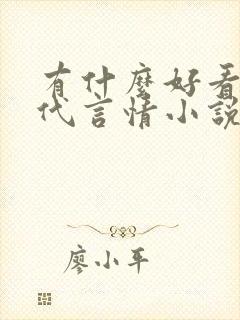 有什麼好看
代言情小說
廖小平